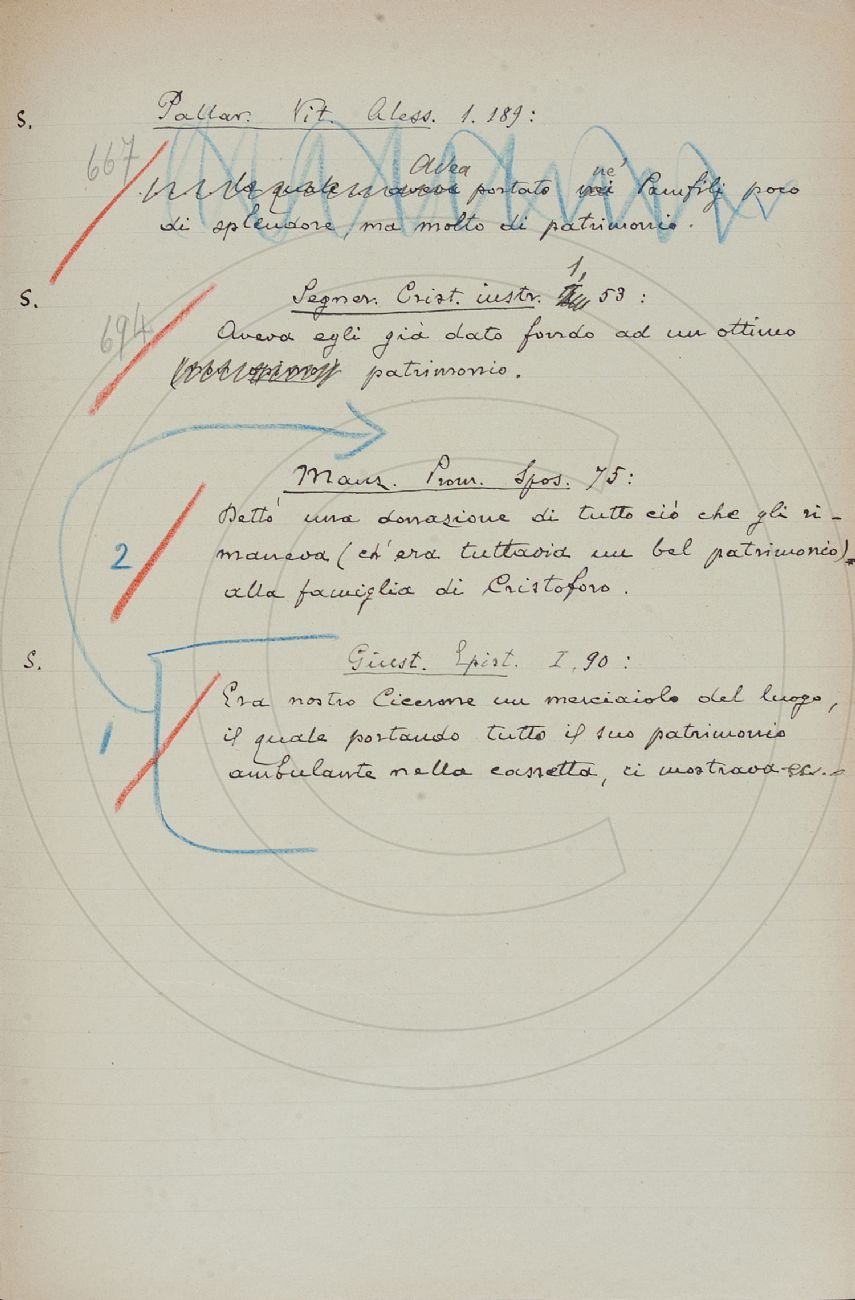 S. Pallav. Vit. Aless. 1. 189:
667
la quale aveva Avea portato nei ne' Pamfilj poco
di splendore, ma molto di patrimonio.
S. Segner. Crist. instr. 1, 53:
694
Aveva egli già dato fondo ad un ottimo
patrimonio.
Manz. Prom. Spos. 75:
Dettò una donazione di tutto ciò che gli ri-
2 maneva (ch'era tuttavia un bel patrimonio)
alla famiglia di Cristoforo.
S. Giust. Epist. I, 90:
Era nostro Cicerone un merciaiolo del luogo,
1 il quale portando tutto il suo patrimonio
ambulante nella cassetta, ci mostrava ec.